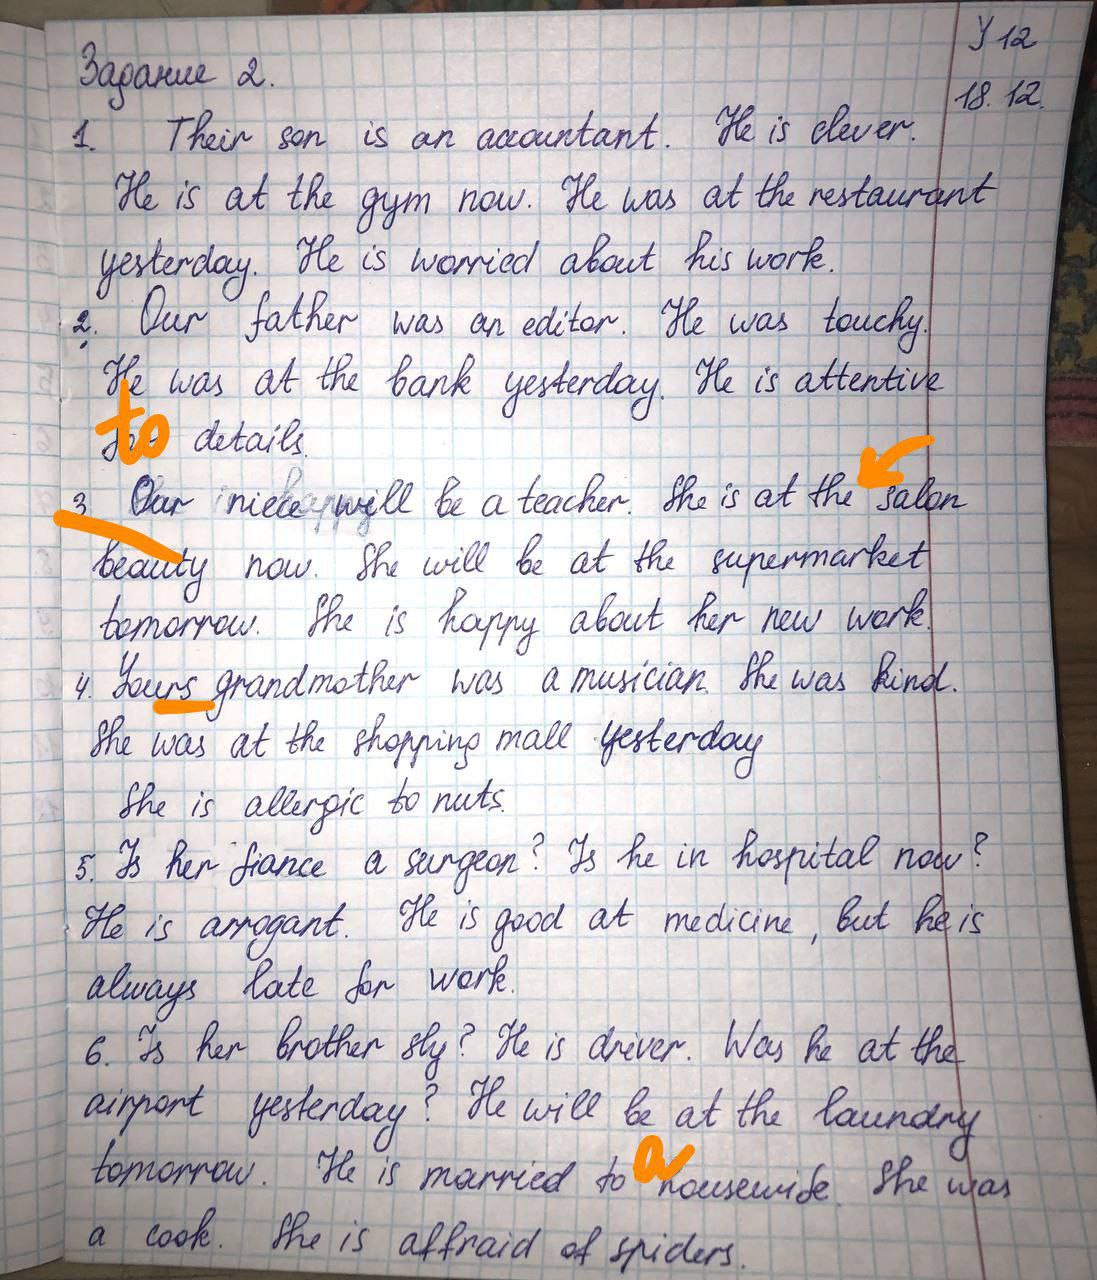 У 12
Задание 2.
18. 12.
1. Their son is an accountant. He is clever.
He is at the gym now. He was at the restaurant
yesterday. He is worried about his work.
2. Our father was an editor. He was touchy.
He was at the bank yesterday. He is attentive
to details.
3. Our niece will be a teacher. She is at the salon
beauty now. She will be at the supermarket
tomorrow. She is happy about her new work.
4. Yours grandmother was a musician. She was kind.
She was at the shopping mall yesterday
She is allergic to nuts.
5. Is her fiance a surgeon? Is he in hospital now?
He is arrogant. He is good at medicine, but he is
always late for work.
6. Is her brother sly? He is driver. Was he at the
airport yesterday? He will be at the laundry
tomorrow. He is married to a housewife. She was
a cook. She is affraid of spiders.